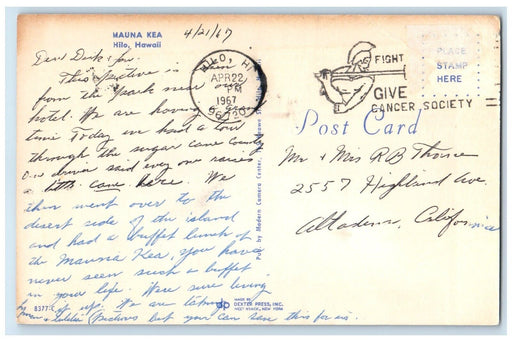 MAUNA KEA
Hilo, Hawaii
4/21/67
Dear Dick &
This picture is taken
from the park near our
hotel. We are having a grand
time. Today we had a tour
through the sugar cane country
Our driver said every one raises
a little cane here. We
then went over to the
desert side of the island
and had a buffet lunch at
the Mauna Kea, you have
never seen such a buffet
in your life. We're sure living
it up. We are taking
pictures but you can save this for us.
8377-C
Pub. by Modern Camera Center,
MADE BY
DEXTER PRESS, INC.
WEST NYACK, NEW YORK
HILO, HI
APR 22
PM
1967
96720
FIGHT
GIVE
CANCER SOCIETY
PLACE
STAMP
HERE
Post Card
Mr & Mrs R B Thorne
2557 Highland Ave.
Altadena, California